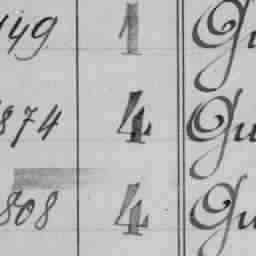 149 1 Gu
874 4 Gu
808 4 Gu